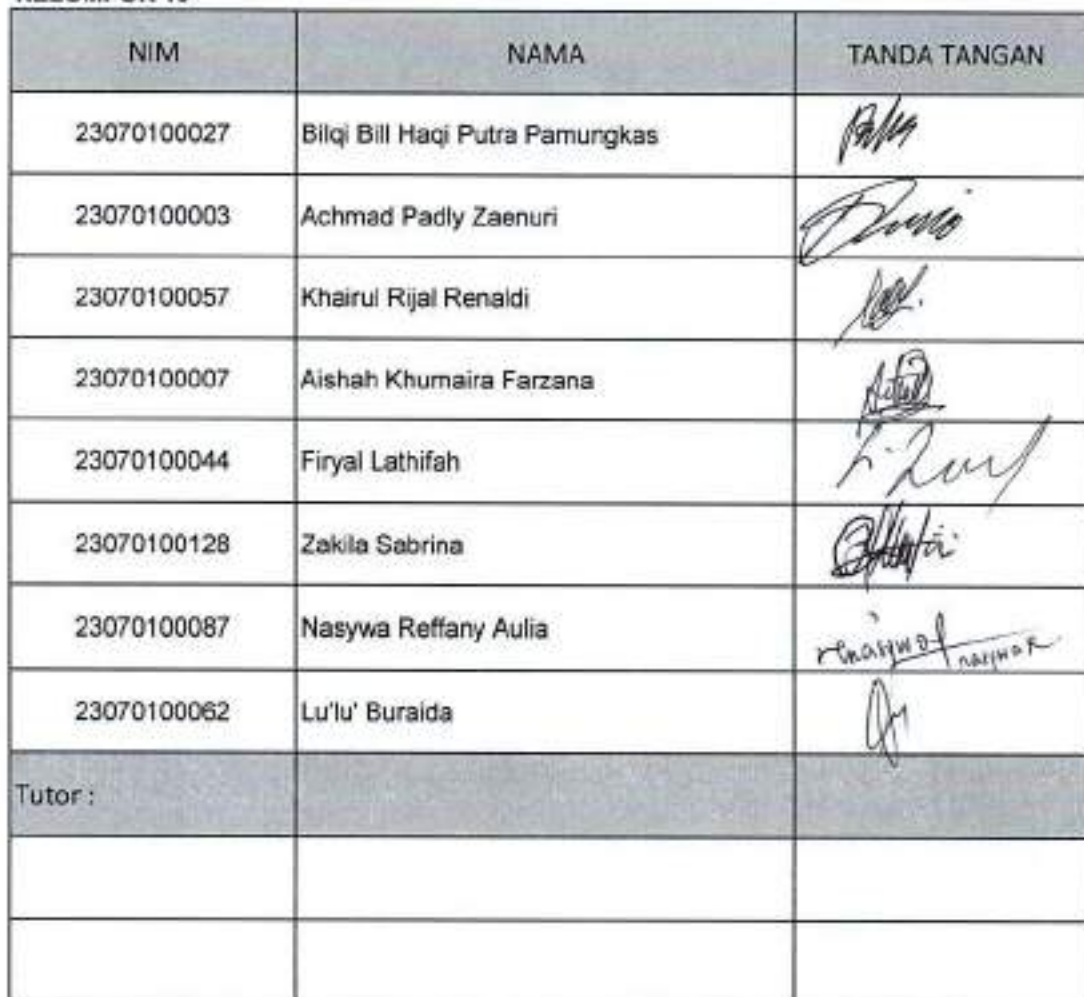 NIM NAMA TANDA TANGAN
23070100027 Bilqi Bill Haqi Putra Pamungkas
23070100003 Achmad Padly Zaenuri
23070100057 Khairul Rijal Renaldi
23070100007 Aishah Khumaira Farzana
23070100044 Firyal Lathifah
23070100128 Zakila Sabrina
23070100087 Nasywa Reffany Aulia
23070100062 Lu'lu' Buraida
Tutor :